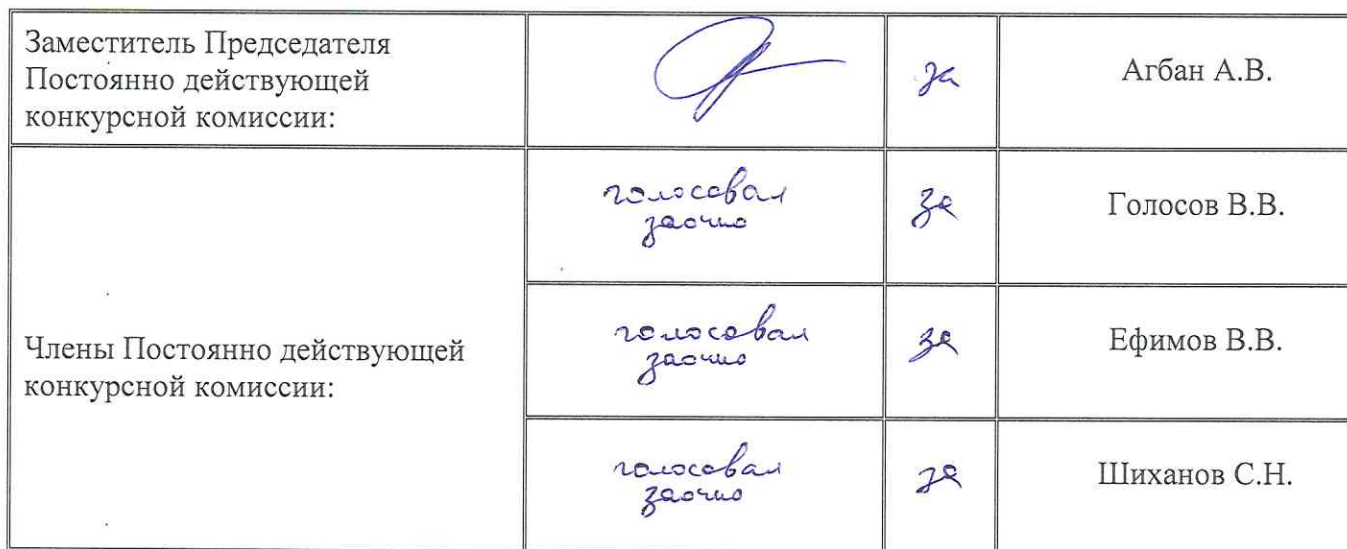 Заместитель Председателя
Постоянно действующей
конкурсной комиссии:
за
Агбан А.В.
Члены Постоянно действующей
конкурсной комиссии:
голосовал
заочно
за
Голосов В.В.
голосовал
заочно
за
Ефимов В.В.
голосовал
заочно
за
Шиханов С.Н.